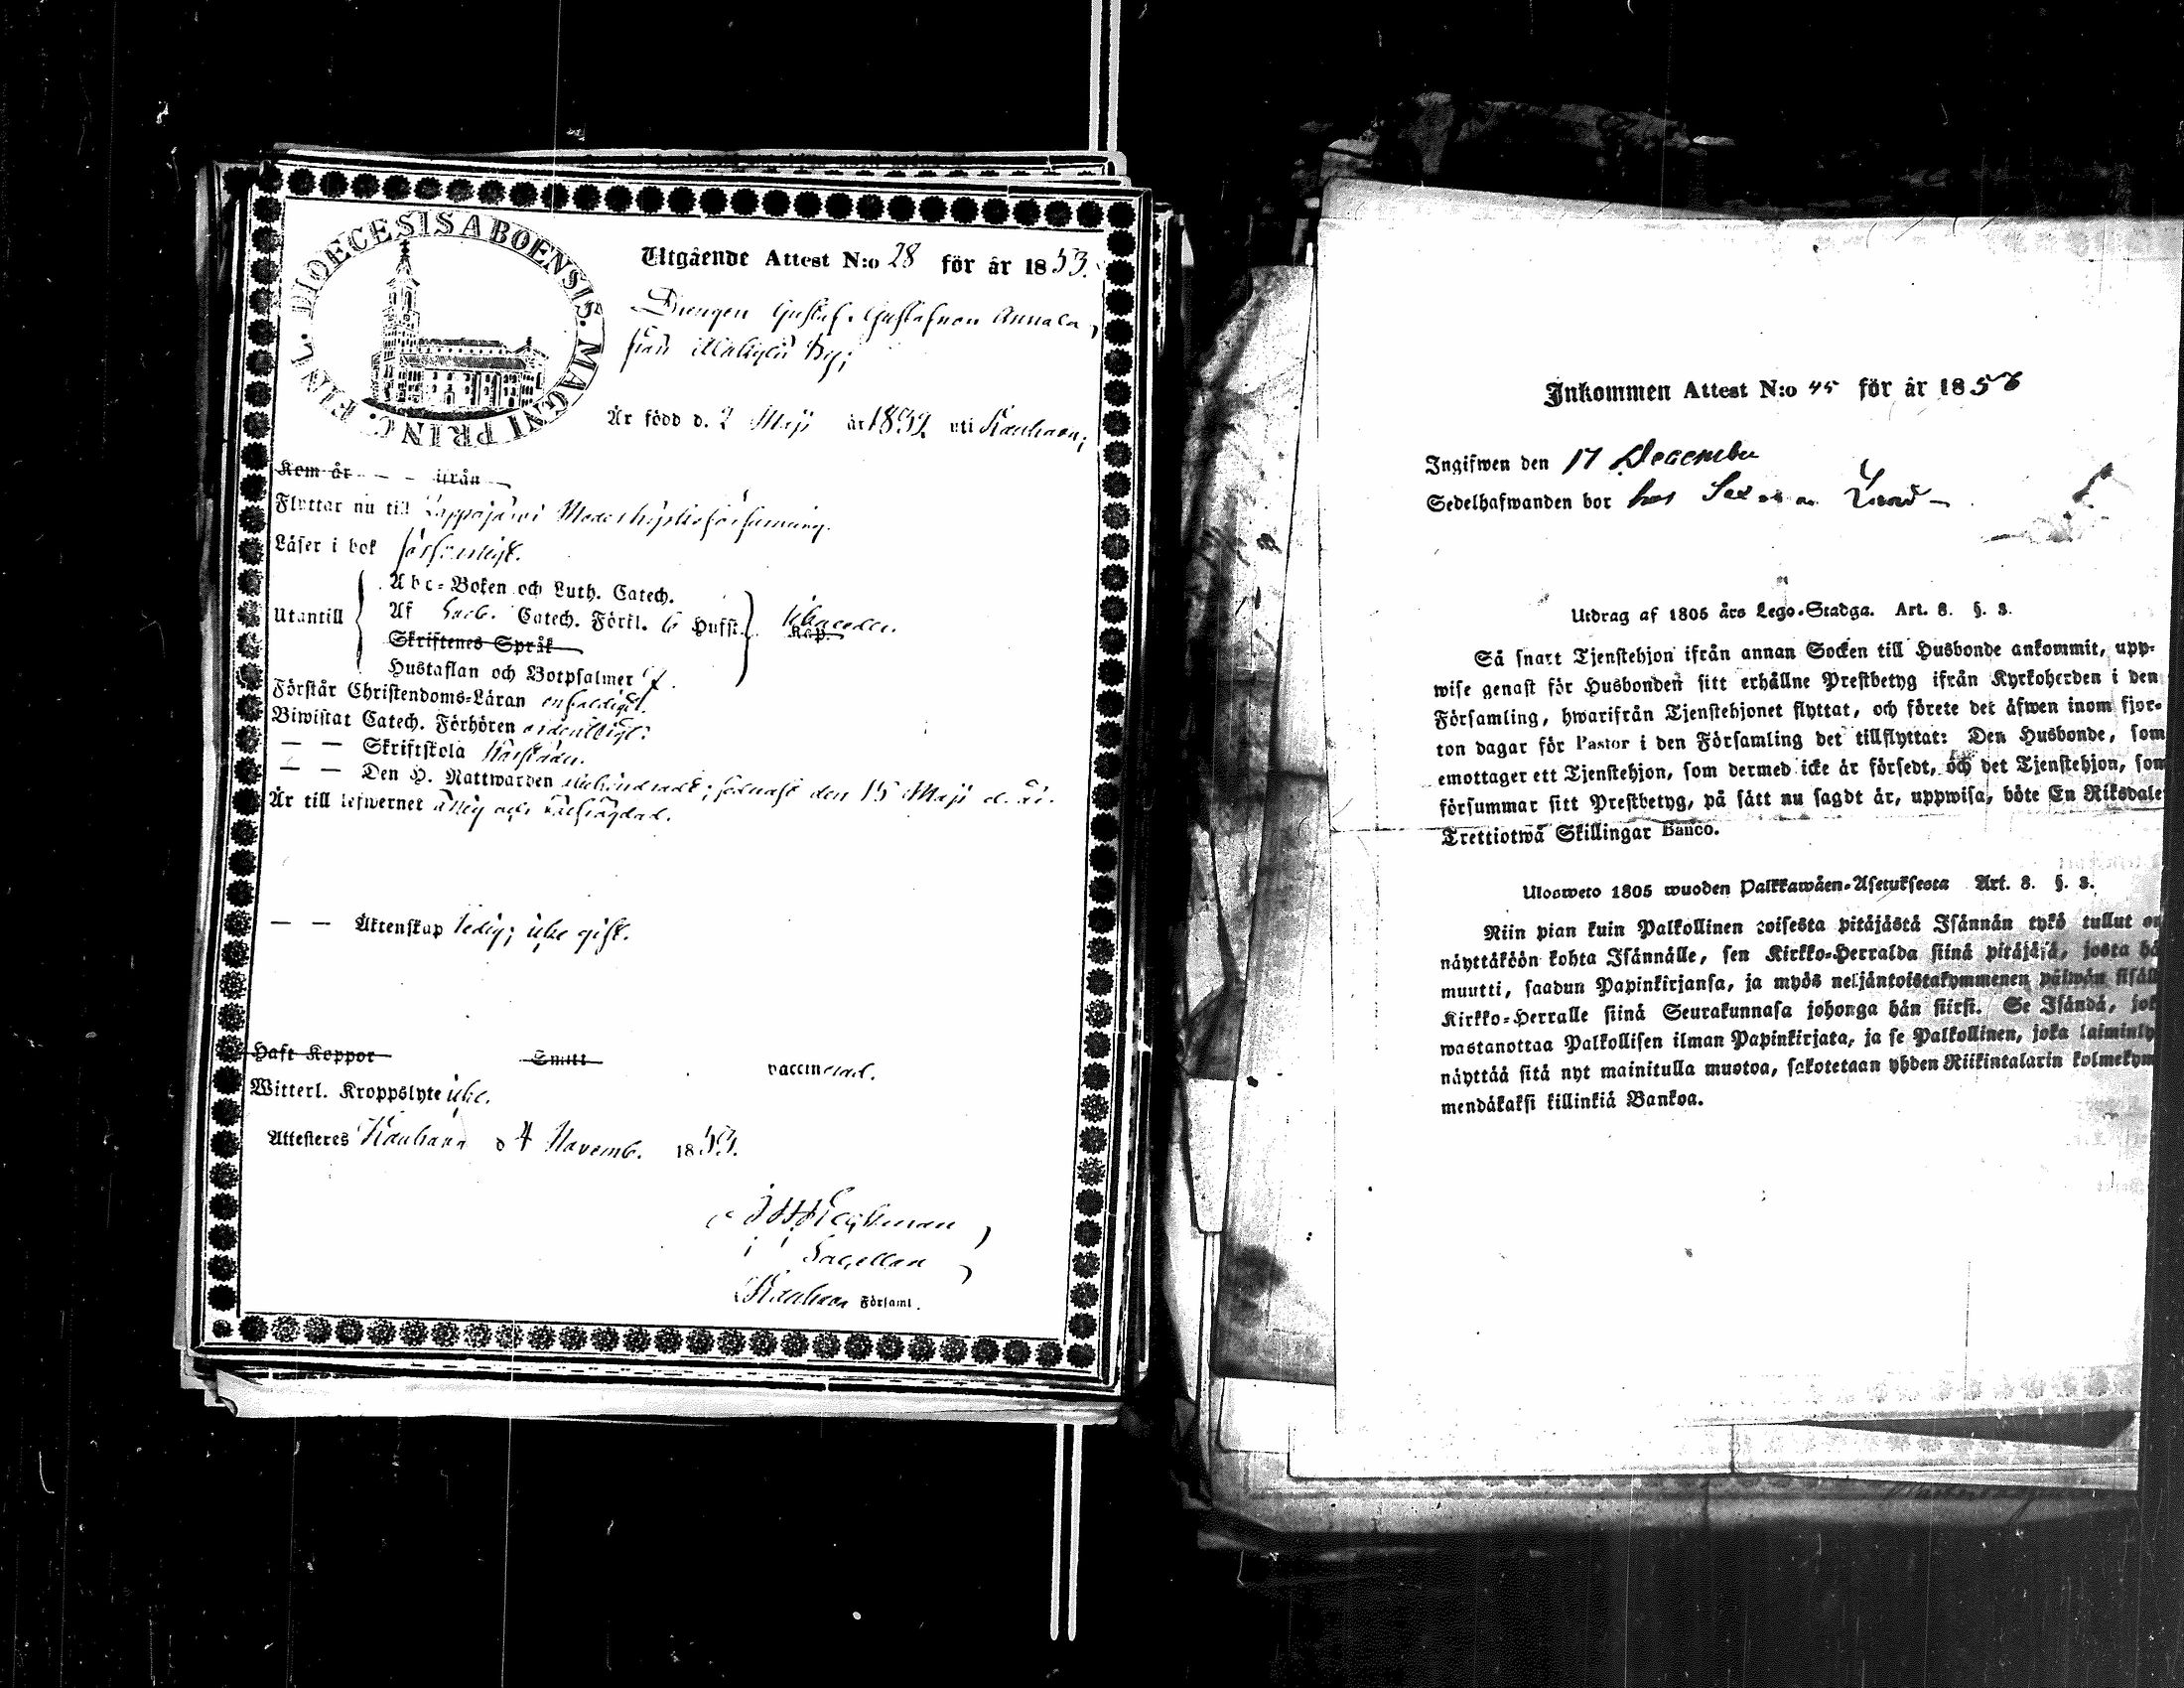 DIOECESIS ABOENSIS. MAGNI PRINC. FINL.
Utgående Attest N:o 28 för år 1853.
Drengen Gustaf Gustafson Annala,
från By;
Är född d. 2 Maji år 1832 uti Kauhava;
Kom år - - - ifrån
Flyttar nu till Lappajärvi Moderkyrkoförsamling.
Läser i bok försvarligt.
Utantill
Abc-Boken och Luth. Catech.
Af Catech. Förkl. 6 Hufst.
Skriftenes Språk
Hustaflan och Botpsalmer
Kap.
Förstår Christendoms-Läran enfaldigt.
Biwistat Catech. Förhören ordentligt.
— — Skriftskola
— — Den H. Nattwarden obehindradt; senast den 15 Maji d. år.
Är till lefwernet ärlig och välfrägdad.
— — Äktenskap ledig; icke gift.
Haft Koppor Smitt vaccinerad.
Witterl. Kroppslyte icke.
Attesteres Kauhava d 4 Novemb. 1853.
Kauhava Församl.
Inkommen Attest N:o 45 för år 185
Ingifwen den 17 December
Sedelhafwanden bor hos
Utdrag af 1805 års Lego-Stadga. Art. 8. §. 3.
Så snart Tjenstehjon ifrån annan Socken till Husbonde ankommit, upp-
wise genast för Husbonden sitt erhållne Prestbetyg ifrån Kyrkoherden i den
Församling, hwarifrån Tjenstehjonet flyttat, och förete det äfwen inom fjor-
ton dagar för Pastor i den Församling det tillflyttat: Den Husbonde, som
emottager ett Tjenstehjon, som dermed icke är försedt, och det Tjenstehjon, som
försummar sitt Prestbetyg, på sätt nu sagdt är, uppwisa, böte En Riksdale
Trettiotwå Skillingar Banco.
Ulosweto 1805 wuoden Palkkawäen-Asetuksesta Art. 8. §. 3.
Niin pian kuin Palkollinen toisesta pitäjästä Isännän tykö tullut on
näyttäköön kohta Isännälle, sen Kirkko-Herralda siinä pitäjäsä, josta hä
muutti, saadun Papinkirjansa, ja myös neljäntoistakymmenen päiwän sisäll
Kirkko-Herralle siinä Seurakunnasa johonga hän siirsi. Se Isändä, jok
wastanottaa Palkollisen ilman Papinkirjata, ja se Palkollinen, joka laiminly
näyttää sitä nyt mainitulla muotoa, sakotetaan yhden Riikintalarin kolmekym
mendäkaksi killinkiä Bankoa.